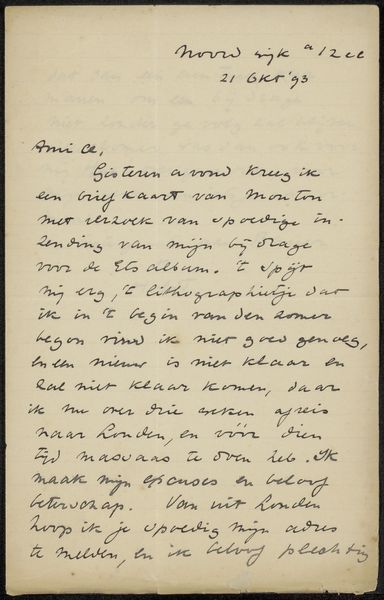 Noordwijk a/Zee
21 Okt '93
Amice,
Gisteren avond kreeg ik
een briefkaart van Mouton
met verzoek van spoedige in-
zending van mijn bijdrage
voor de Etsalbum. 't Spijt
mij erg, 't lithographietje dat
ik in 't begin van den zomer
begon vind ik niet goed genoeg,
en een nieuw is niet klaar en
zal niet klaar komen, daar
ik nu over drie weken afreis
naar Londen, en vóór dien
tijd massaas te doen heb. Ik
maak mijn excuses en beloof
beterschap. Van uit Londen
hoop ik je spoedig mijn adres
te melden, en ik beloof plechtig